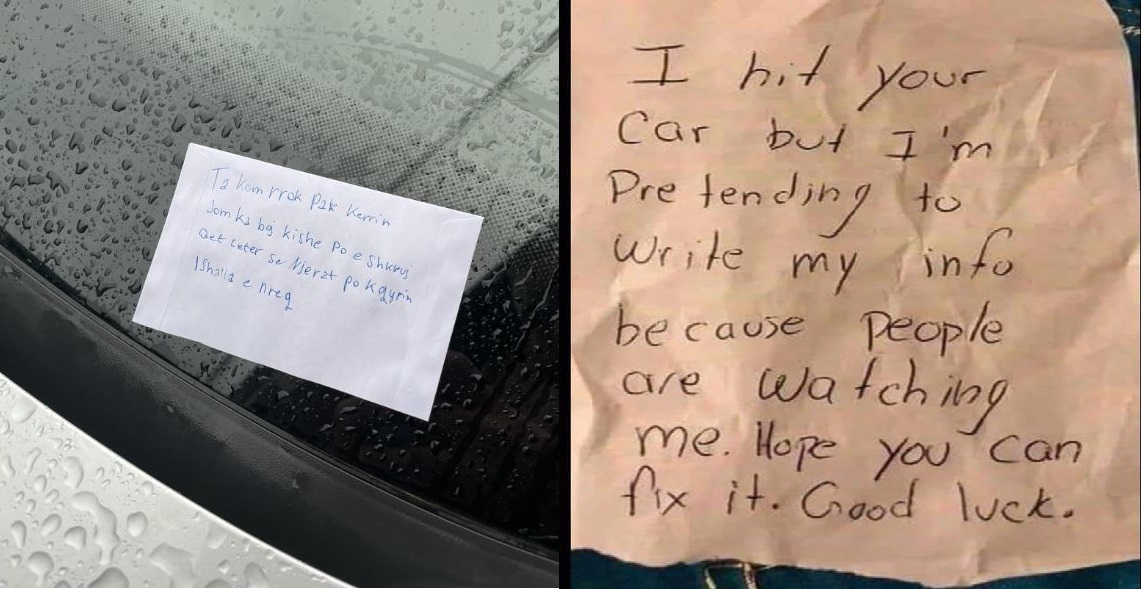 Ta kom rrok pak kerrin
Jom ka bo kishe po e shkruj
Qet leter se njerzt po kqyrin
Ishalla e nreq
I hit your
Car but I'm
Pretending to
Write my info
because people
are watching
me. Hope you can
fix it. Good luck.